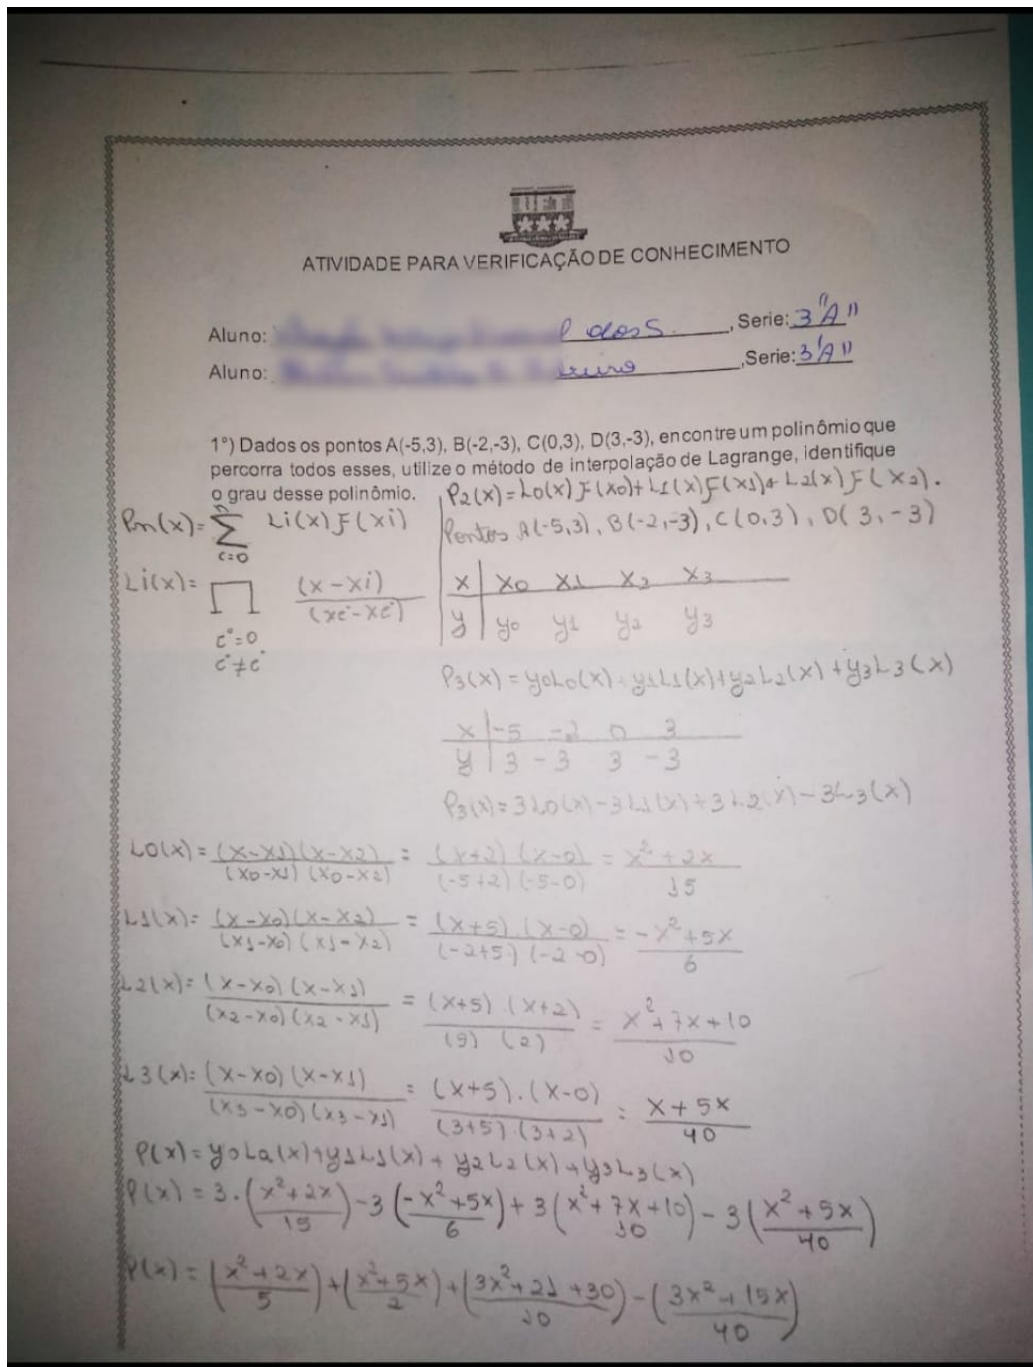 ATIVIDADE PARA VERIFICAÇÃO DE CONHECIMENTO
Aluno: P dos S. ,Serie: 3"A"
Aluno: ,Serie: 3'A"
1°) Dados os pontos A(-5,3), B(-2,-3), C(0,3), D(3,-3), encontre um polinômio que
percorra todos esses, utilize o método de interpolação de Lagrange, identifique
o grau desse polinômio.
P2(x)=L0(x)F(x0)+L1(x)F(x1)+L2(x)F(x2).
Pn(x)= n∑c=0 Li(x)F(xi)
Pontos A(-5,3), B(-2,-3), C(0,3), D(3,-3)
Li(x)= ∏ (x-xi)/(xc-xc)
c=0
c≠c
x | x0 x1 x2 x3
y | y0 y1 y2 y3
P3(x)=y0L0(x)+y1L1(x)+y2L2(x)+y3L3(x)
x | -5 -2 0 3
y | 3 -3 3 -3
P3(x)=3L0(x)-3L1(x)+3L2(x)-3L3(x)
L0(x)=(x-x1)(x-x2)/(x0-x1)(x0-x2) = (x+2)(x-0)/(-5+2)(-5-0) = x²+2x/15
L1(x)=(x-x0)(x-x2)/(x1-x0)(x1-x2) = (x+5).(x-0)/(-2+5)(-2-0) = -x²+5x/6
L2(x)=(x-x0)(x-x1)/(x2-x0)(x2-x1) = (x+5).(x+2)/(5)(2) = x²+7x+10/10
L3(x)=(x-x0)(x-x1)/(x3-x0)(x3-x1) = (x+5).(x-0)/(3+5).(3+2) = x+5x/40
P(x)=y0La(x)+y1L1(x)+y2L2(x)+y3L3(x)
P(x)=3.(x²+2x/15)-3(-x²+5x/6)+3(x²+7x+10/10)-3(x²+5x/40)
P(x)=(x²+2x/5)+(x²+5x/2)+(3x²+21+30/10)-(3x²+15x/40)